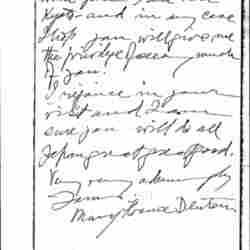 Kyoto and in any case
I hope you will give me
the privilege of seeing much
of you.
I rejoice in your
visit and I am
sure you will do all
Japan great good.
Very very
Mary Florence Denton